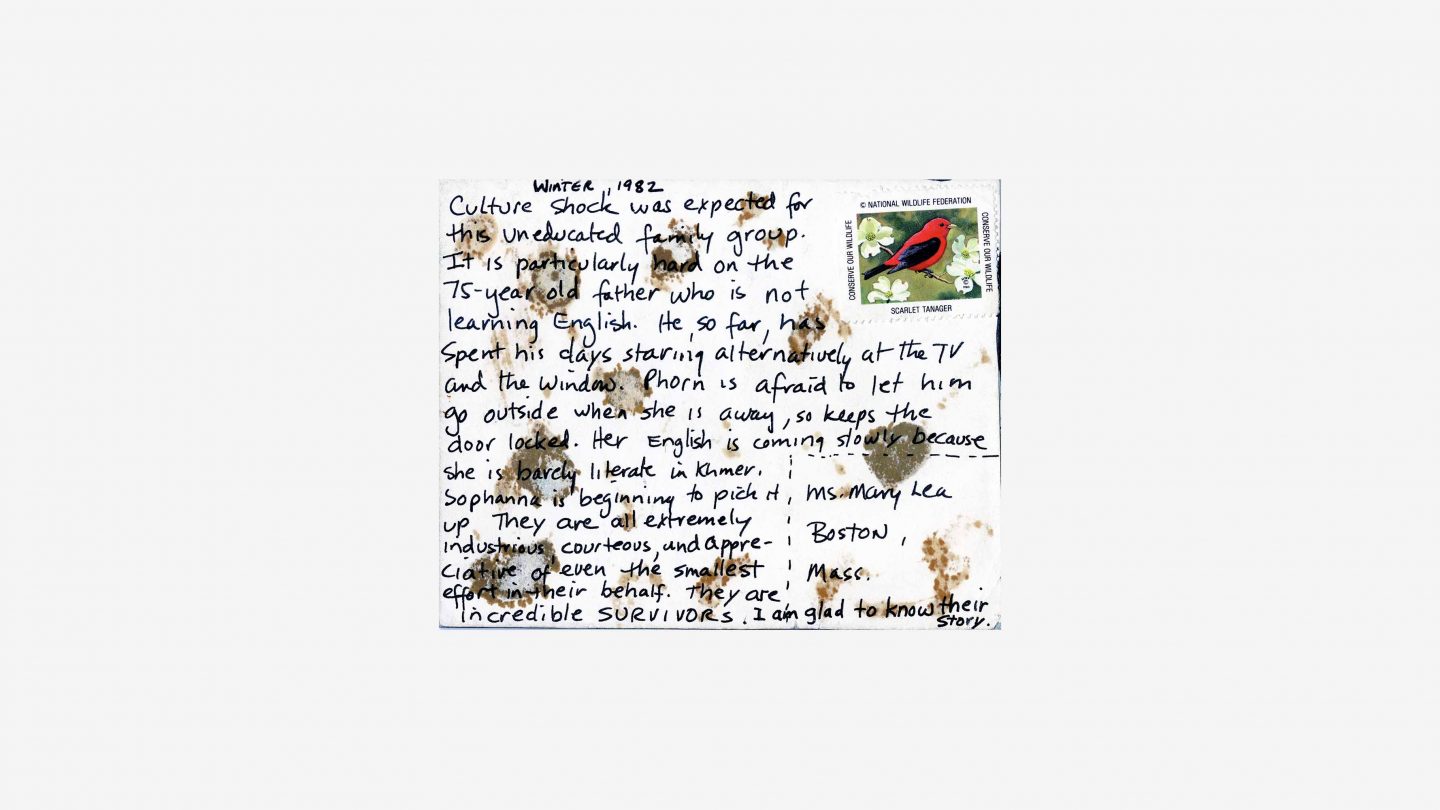 WINTER, 1982
Culture Shock was expected for
this uneducated family group.
It is particularly hard on the
75-year old father who is not
learning English. He, so far, has
spent his days staring alternatively at the TV
and the window. Phorn is afraid to let him
go outside when she is away, so keeps the
door locked. Her English is coming slowly because
she is barely literate in Khmer.
Sophanna is beginning to pick it
up. They are all extremely
industrious, courteous, and appre-
ciative of even the smallest
effort in their behalf. They are
incredible SURVIVORS. I am glad to know their
story.
© NATIONAL WILDLIFE FEDERATION
CONSERVE OUR WILDLIFE
CONSERVE OUR WILDLIFE
SCARLET TANAGER
Ms. Mary Lea
Boston,
Mass.